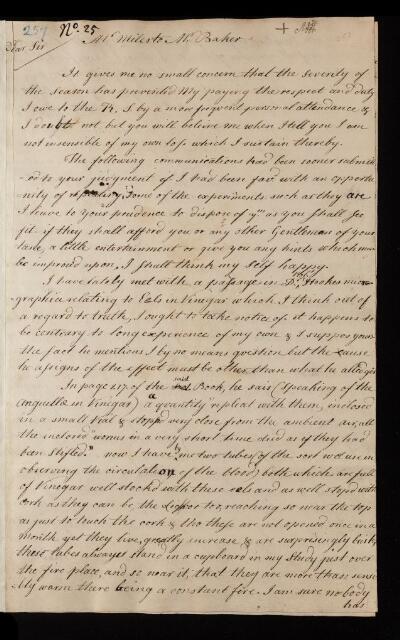 257 No. 25
Mr Miles to Mr Baker
Dear Sir
It gives me no small concern that the severity of
the season has prevented My paying the respect and duty
I owe to the R. S by a more frequent personal attendance &
I doubt not, but you will believe me when I tell you I am
not insensible of my own loss which I sustain thereby.
The following communications had been sooner submitt
-ed to your judgment if I had been favd with an opportu
nity of Some of the experiments such as they are
I leave to your prudence to dispose of ym as you shall see
fit if they shall afford you or any other Gentlemen of your
taste, a little entertainment or give you any hints which may
be improvd upon, I shall think my self happy.
I have lately met with a passage in Dr. Hookes micro-
graphia relating to Eels in Vinegar which I think out of
a regard to truth, I ought to take notice of. it happens to
be contrary to long experience of my own & I suppose
the fact he mentions I by no means question but the cause
he assigns of the effect must be other than what he alledges
In page 217 of the said Book, he says (speaking of the
Anguillæ in Vinegar) a quantity repleat with them, inclosed
in a small Vial & stopd very close from the ambient air, all
the inclosed worms in a very short time died as if they had
been stifled". now I have two tubes of the sort we use in
observing the circulation of the blood, both which are full
of Vinegar well stockd with these eels and as well stopd with
cork as they can be, the Liquor too, reaching so near the top
as just to touch the cork & tho these are not opened once in a
month yet they live, greatly increase, & are surprisingly brisk,
these tubes always stand in a cupboard in my study just over
the fire place, and so near it, that they are more than sensi
bly warm there being a constant fire. I am sure nobody
has